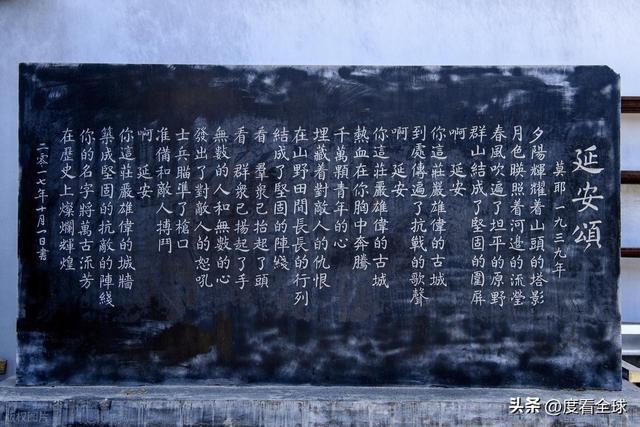 延安頌
莫耶 一九三九年
夕陽輝耀着山頭的塔影
月色映照着河邊的流螢
春風吹遍了坦平的原野
群山結成了堅固的圍屏
啊 延安
你這莊嚴雄偉的古城
到處傳遍了抗戰的歌聲
啊 延安
你這莊嚴雄偉的古城
熱血在你胸中奔騰
千萬顆青年的心
埋藏着對敵人的仇恨
在山野田間長長的行列
結成了堅固的陣綫
看 羣衆已抬起了頭
看 群衆已揚起了手
無數的人和無數的心
發出了對敵人的怒吼
士兵瞄準了槍口
准備和敵人搏鬥
啊 延安
你這莊嚴雄偉的城牆
築成堅固的抗敵的陣綫
你的名字將萬古流芳
在歷史上燦爛輝煌
二零一七年十月一日書
版权图片
头条 @度看全球